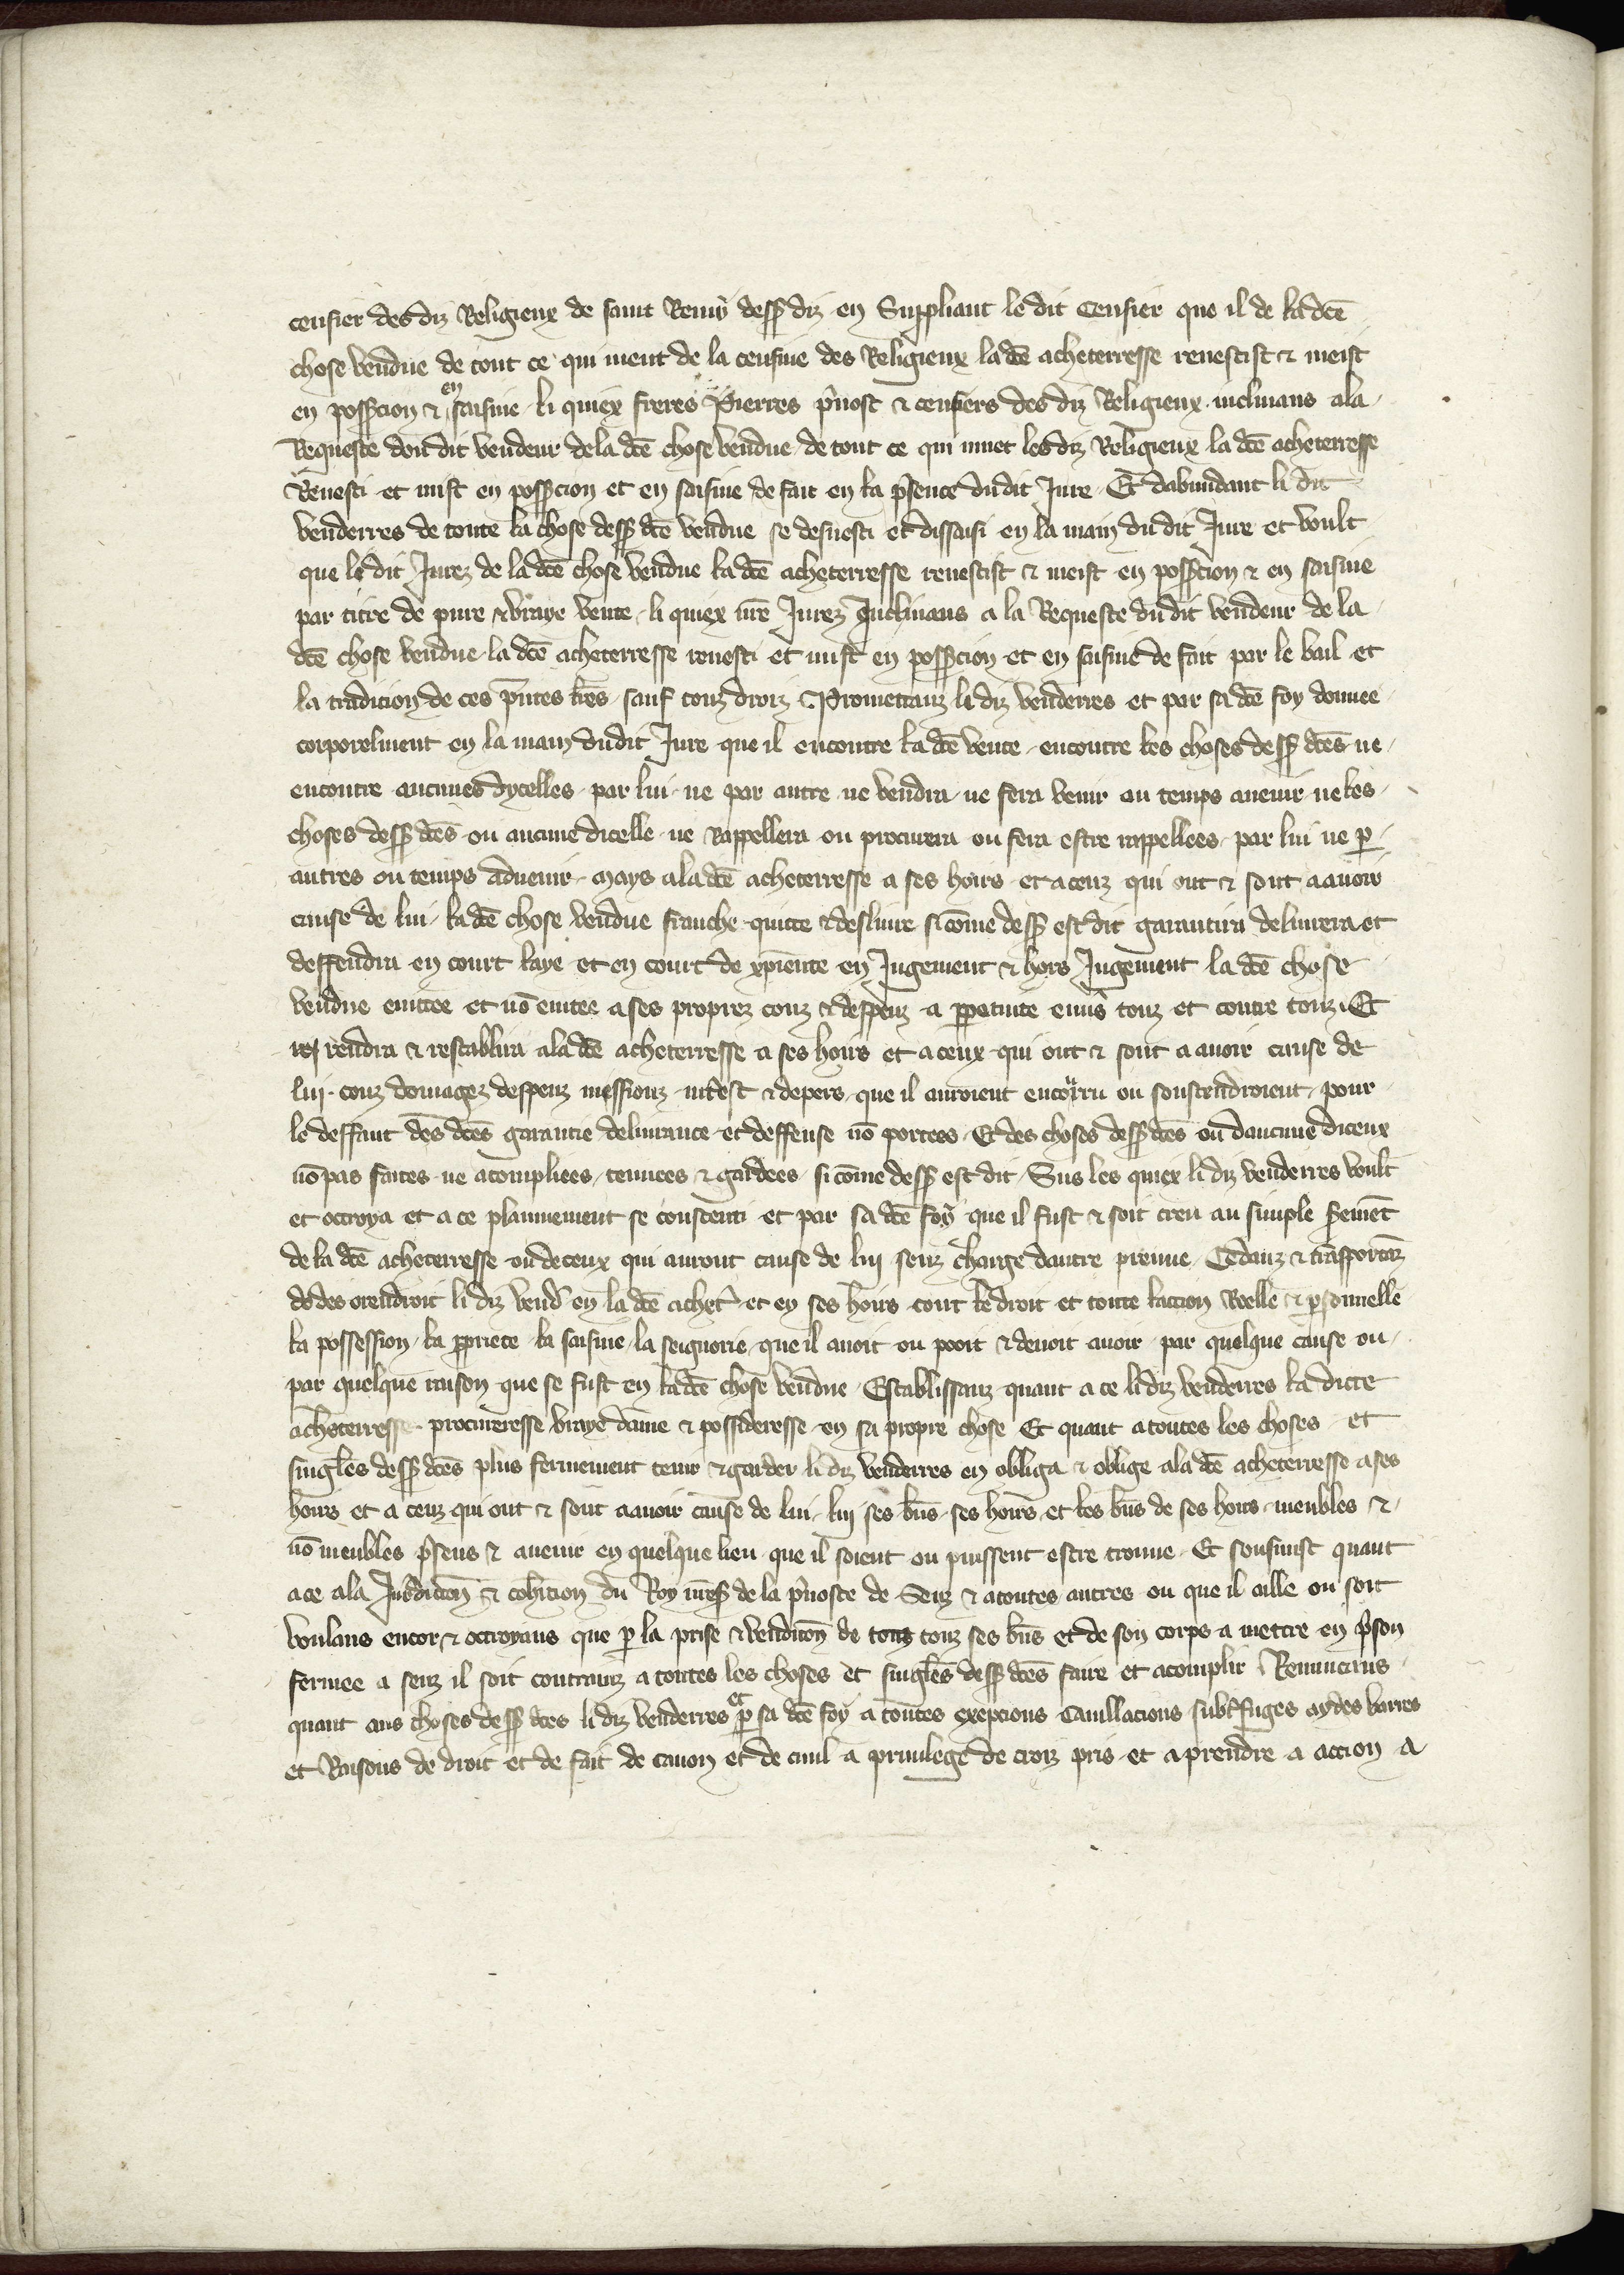 censier des diz Religieux de saint Remy dess̃ diz en Suppliant le dit Censier que il de la dc̃e
chose vendue de tout ce qui muet de la censiue des Religieux la dc̃e acheterresse reuestist & meist
en poss̃cion & en saisine li quiex freres Pierres p̃uost & censiers des diz Religieux inclinans a la
Requeste dou dit vendeur de la dc̃e chose vendue de tout ce qui muet les diz Religieux la dc̃e acheterresse
Reuesti et mist en poss̃cion et en saisine de fait en la p̃sence du dit Jure Et dabundant li dit
venderres de toute la chose dess̃ dc̃e vendue se desuesti et dissaisi en la main du dit Jure et voult
que le dit Jurez de la dc̃e chose vendue la dc̃e acheterresse reuestist & meist en poss̃cion & en saisine
par titre de pure & vraye vente li quiex nr̃e Jurez Inclinans a la Requeste du dit vendeur de la
dc̃e chose vendue la dc̃e acheterresse reuesti et mist en poss̃cion et en saisine de fait par le bail et
la tradicion de ces p̃ntes lr̃es sauf touz droiz Promettanz li diz venderres et par sa dc̃e foy donnee
corporelment en la main du dit Jure que il encontre la dc̃e vente encontre les choses dess̃ dc̃es ne
encontre aucunes dycelles par lui ne par autre ne vendra ne fera venir ou temps auenir ne les
choses dess̃ dc̃es ou aucune dicelle ne Rappellera ou procurera ou fera estre rappellees par lui ne p̱
autres ou temps aduenir mays a la dc̃e acheterresse a ses hoirs et a ceuz qui ont & sont a auoir
cause de lui la dc̃e chose vendue franche quitte & desliure si cõme dess̃ est dit garantira deliurera et
deffendra en court laye et en court de xp̃iente en Jugement & hors Jugement la dc̃e chose
vendue euittee et nõ euitee a ses proprez couz & despenz a p̱petuite enũs touz et contre touz Et
rendra & restablira a la dc̃e acheterresse a ses hoirs et a ceux qui ont & sont a auoir cause de
lui couz domagez despenz missionz int̃est & depers que il auroient encorru ou soustendroient pour
le deffaut des dc̃es garantie deliurance et deffense nõ portees Et des choses dess̃ dc̃es ou daucune diceux
nõ pas faites ne acompliees tenuees & gardees si cõme dess̃ est dit Sus les quiex li diz venderres voult
et ottroya et a ce plainnement se consenti et par sa dc̃e foy que il fust & soit creu au simple s̃emẽt
de la dc̃e acheterresse ou de ceux qui auront cause de lui senz charge dautre preuue Cedanz & trãsportãz
des orendroit li diz vend̃ en la dc̃e achet̃ et en ses hoirs tout le droit et toute laction Reelle & p̱sonnelle
la possession la p̱priete la saisine la seignorie que il auoit ou pooit & deuoit auoir par quelque cause ou
par quelque raison que se fust en la dc̃e chose vendue Establissanz quant a ce li diz venderres la dicte
acheterresse procureresse vraye dame & possideresse en sa propre chose Et quant a toutes les choses et
singl̃es dess̃ dc̃es plus fermement tenir & garder li diz venderres en obliga & oblige a la dc̃e acheterresse a ses
hoirs et a ceuz qui ont & sont a auoir cause de lui lui ses bñs ses hoirs et les bñs de ses hoirs meubles &
nõ meubles p̃sens & auenir en quelque lieu que il soient ou puissent estre trouue Et sousmist quant
a ce a la Jurdictõn & cohrcion du Roy nr̃es̃ de la p̃uoste de Senz & a toutes autres ou que il aille ou soit
voulans encor & ottroyans que p̱ la prise & venditõn de touz touz ses bñs et de son corps a mettre en p̃son
fermee a senz il soit contrainz a toutes les choses et singl̃es dess̃ dc̃es faire et acomplir Renuncans
quant aus choses dess̃ dc̃es li diz venderres et p̱ sa dc̃e foy a toutes excepcions Cauillacions subt̃fuges aydes barres
et Raisons de droit et de fait de canon et de ciuil a priuilege de croiz pris et a prendre a accion a